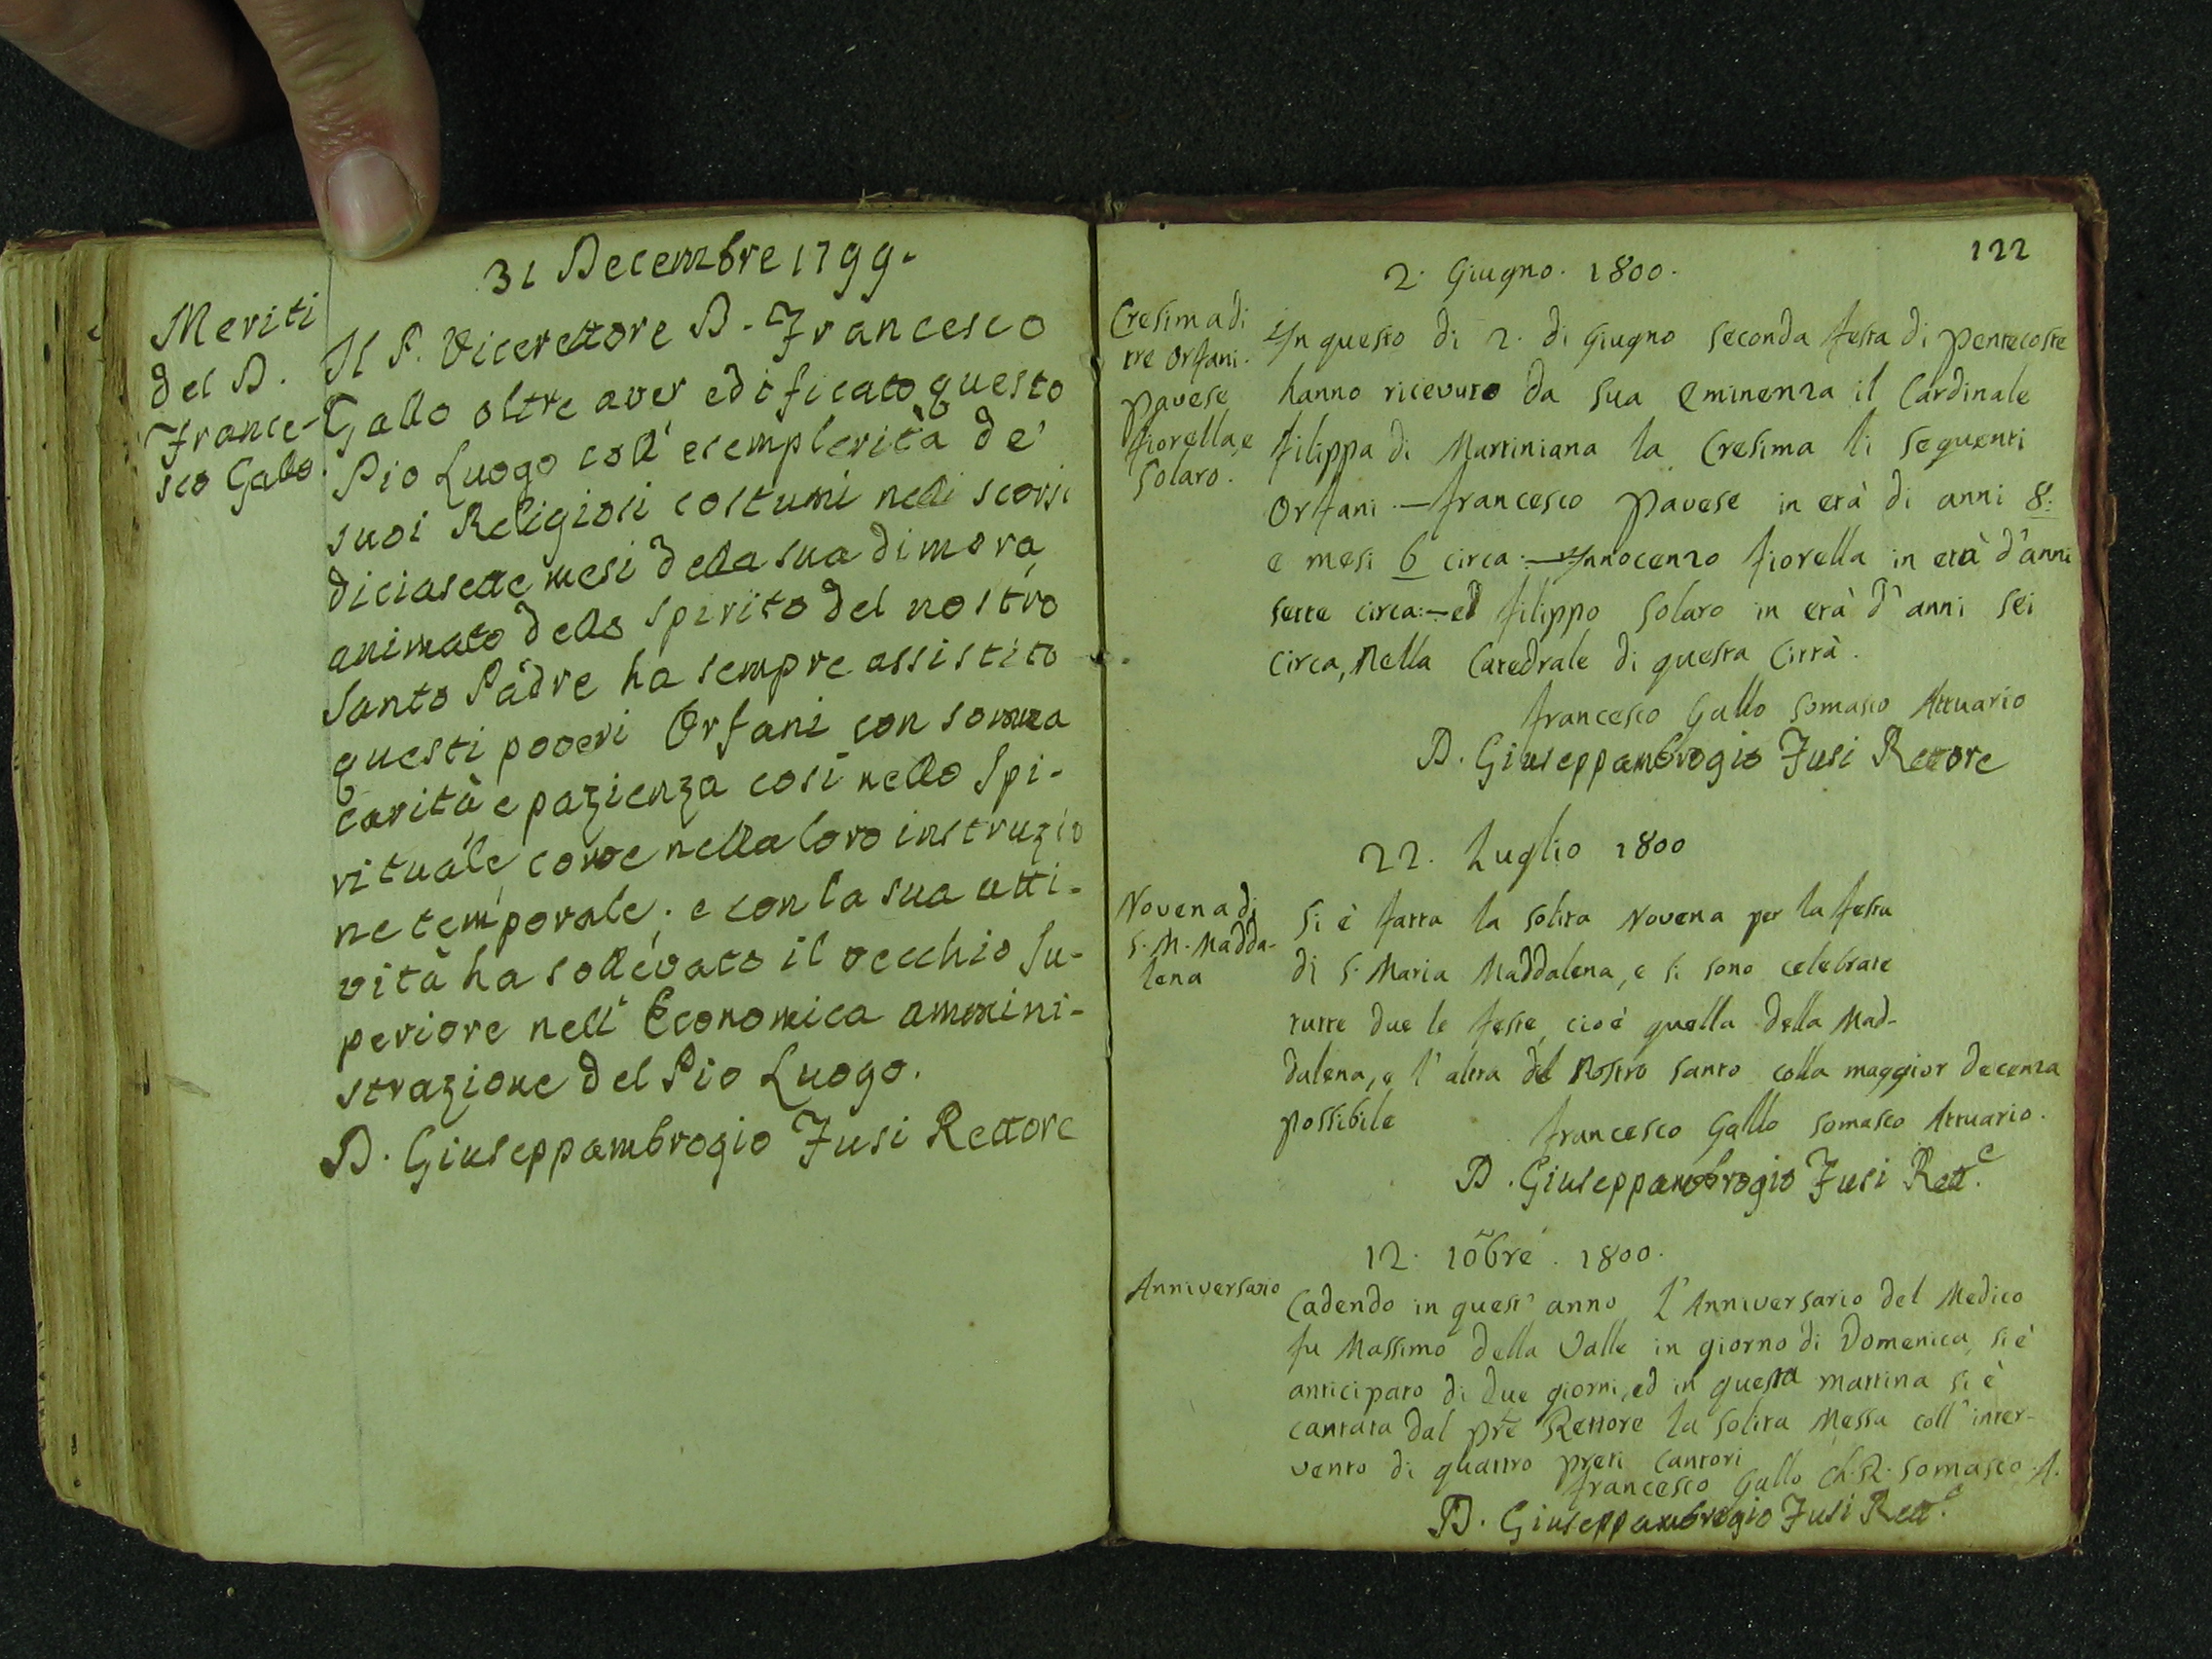 31 Decembre 1799.
Meriti
del D.
France-
sco Gallo.
Il P. Vicerettore D. Francesco
Gallo oltre aver edificato questo
Pio Luogo coll' esemplerità de'
suoi Religiosi costumi nelli scorsi
diciasette mesi della sua dimora,
animato dello spirito del nostro
Santo Padre ha sempre assistito
questi poveri Orfani con somma
carità e pazienza così nello Spi-
rituale come nella loro instruzio
ne temporale; e con la sua atti-
vità ha sollevato il vecchio Su-
periore nell' Economica ammini-
strazione del Pio Luogo.
D. Giuseppambrogio Fusi Rettore
122
2. Giugno. 1800.
Cresima di
tre Orfani.
Pavese
fiorella, e
Solaro.
In questo di 2. di Giugno seconda festa di Pentecoste
hanno ricevuto da sua Eminenza il Cardinale
filippa di Martiniana la Cresima li seguenti
Orfani.—francesco Pavese in età di anni 8:
e mesi 6 circa:—Innocenzo fiorella in età d'anni
sette circa:—ed filippo Solaro in età d'anni sei
circa, nella Catedrale di questa Città.
francesco Gallo Somasco Attuario
D. Giuseppambrogio Fusi Rettore
22. Luglio 1800
Novena di
S. M. Madda-
lena
Si è fatta la solita Novena per la festa
di S. Maria Maddalena, e si sono celebrate
tutte due le feste, cioè quella della Mad-
dalena, e l'altra del Nostro Santo colla maggior decenza
possibile
francesco Gallo somasco Attuario.
D. Giuseppambrogio Fusi Rett.e
12. 10bre. 1800.
Anniversario
Cadendo in quest' anno l'Anniversario del Medico
fu Massimo della Valle in giorno di Domenica, si è
anticipato di due giorni, ed in questa mattina si è
cantata dal pre Rettore la solita Messa coll' inter-
vento di quattro preti Cantori
francesco Gallo Ch. R. Somasco A.
D. Giuseppambrogio Fusi Rett.e